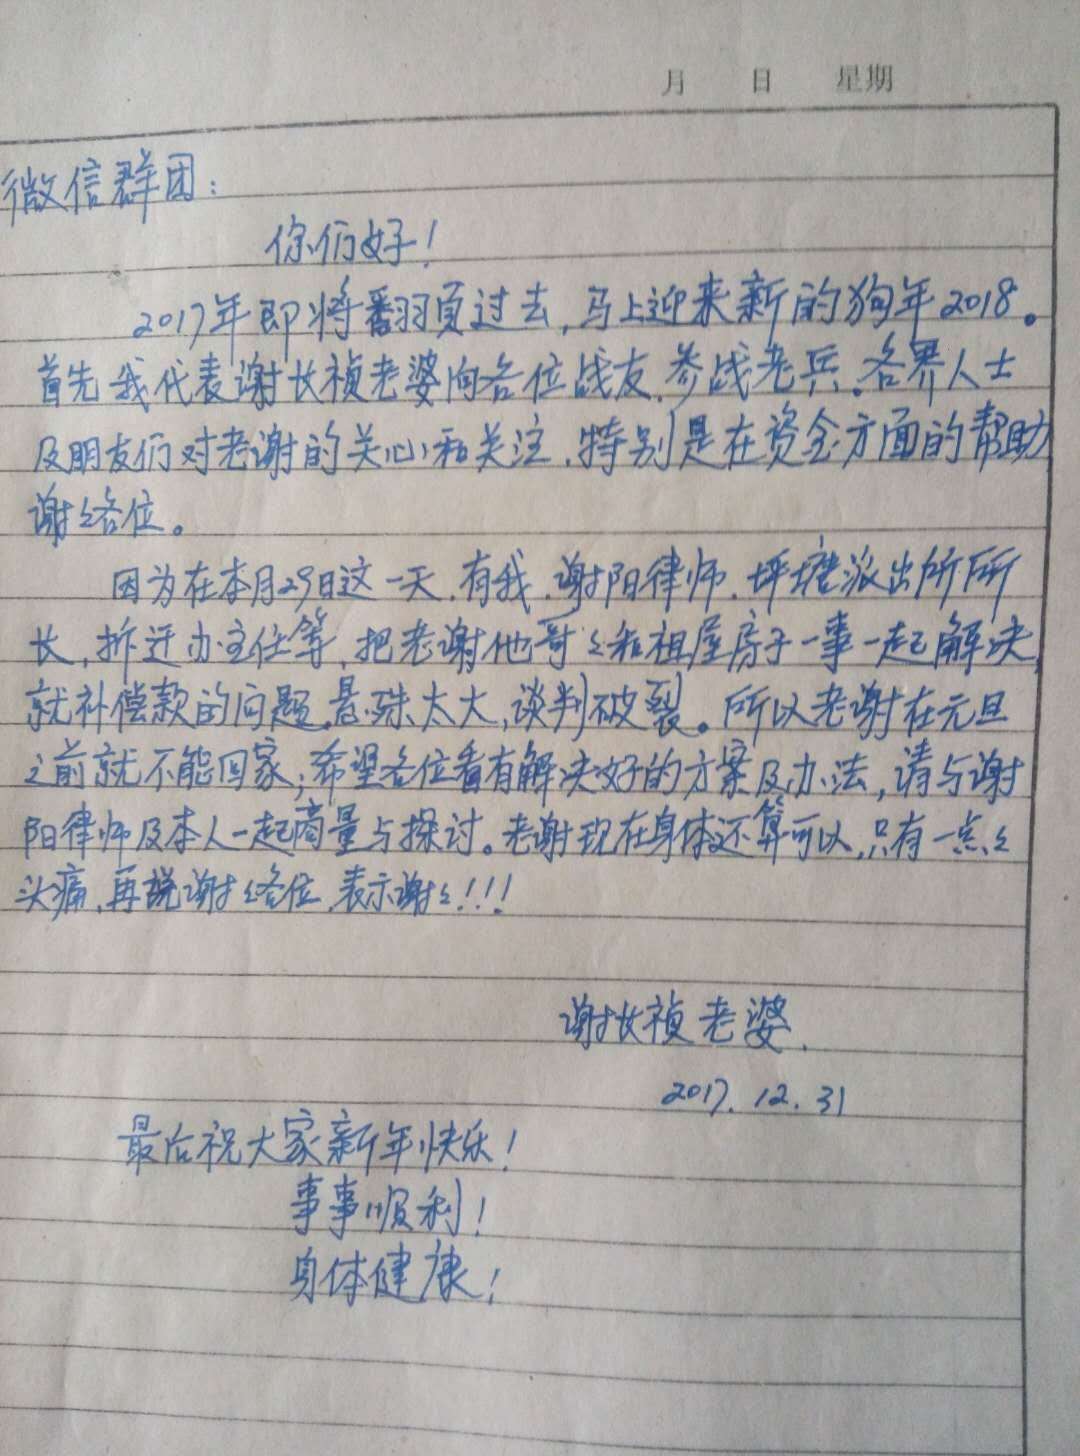 月 日 星期
微信群团:
你们好!
2017年即将翻页过去,马上迎来新的狗年2018。
首先我代表谢长祯老婆向各位战友、参战老兵、各界人士
及朋友们对老谢的关心和关注,特别是在资金方面的帮助
谢々各位。
因为在本月29日这一天,有我、谢阳律师、坪塘派出所所
长,拆迁办主任等,把老谢他哥々和祖屋房子一事一起解决,
就补偿款的问题,悬殊太大,谈判破裂。所以老谢在元旦
之前就不能回家,希望各位看有解决好的方案及办法,请与谢
阳律师及本人一起商量与探讨。老谢现在身体还算可以,只有一点々
头痛,再说谢々各位,表示谢々!!!
谢长祯老婆.
2017.12.31
最后祝大家新年快乐!
事事顺利!
身体健康!